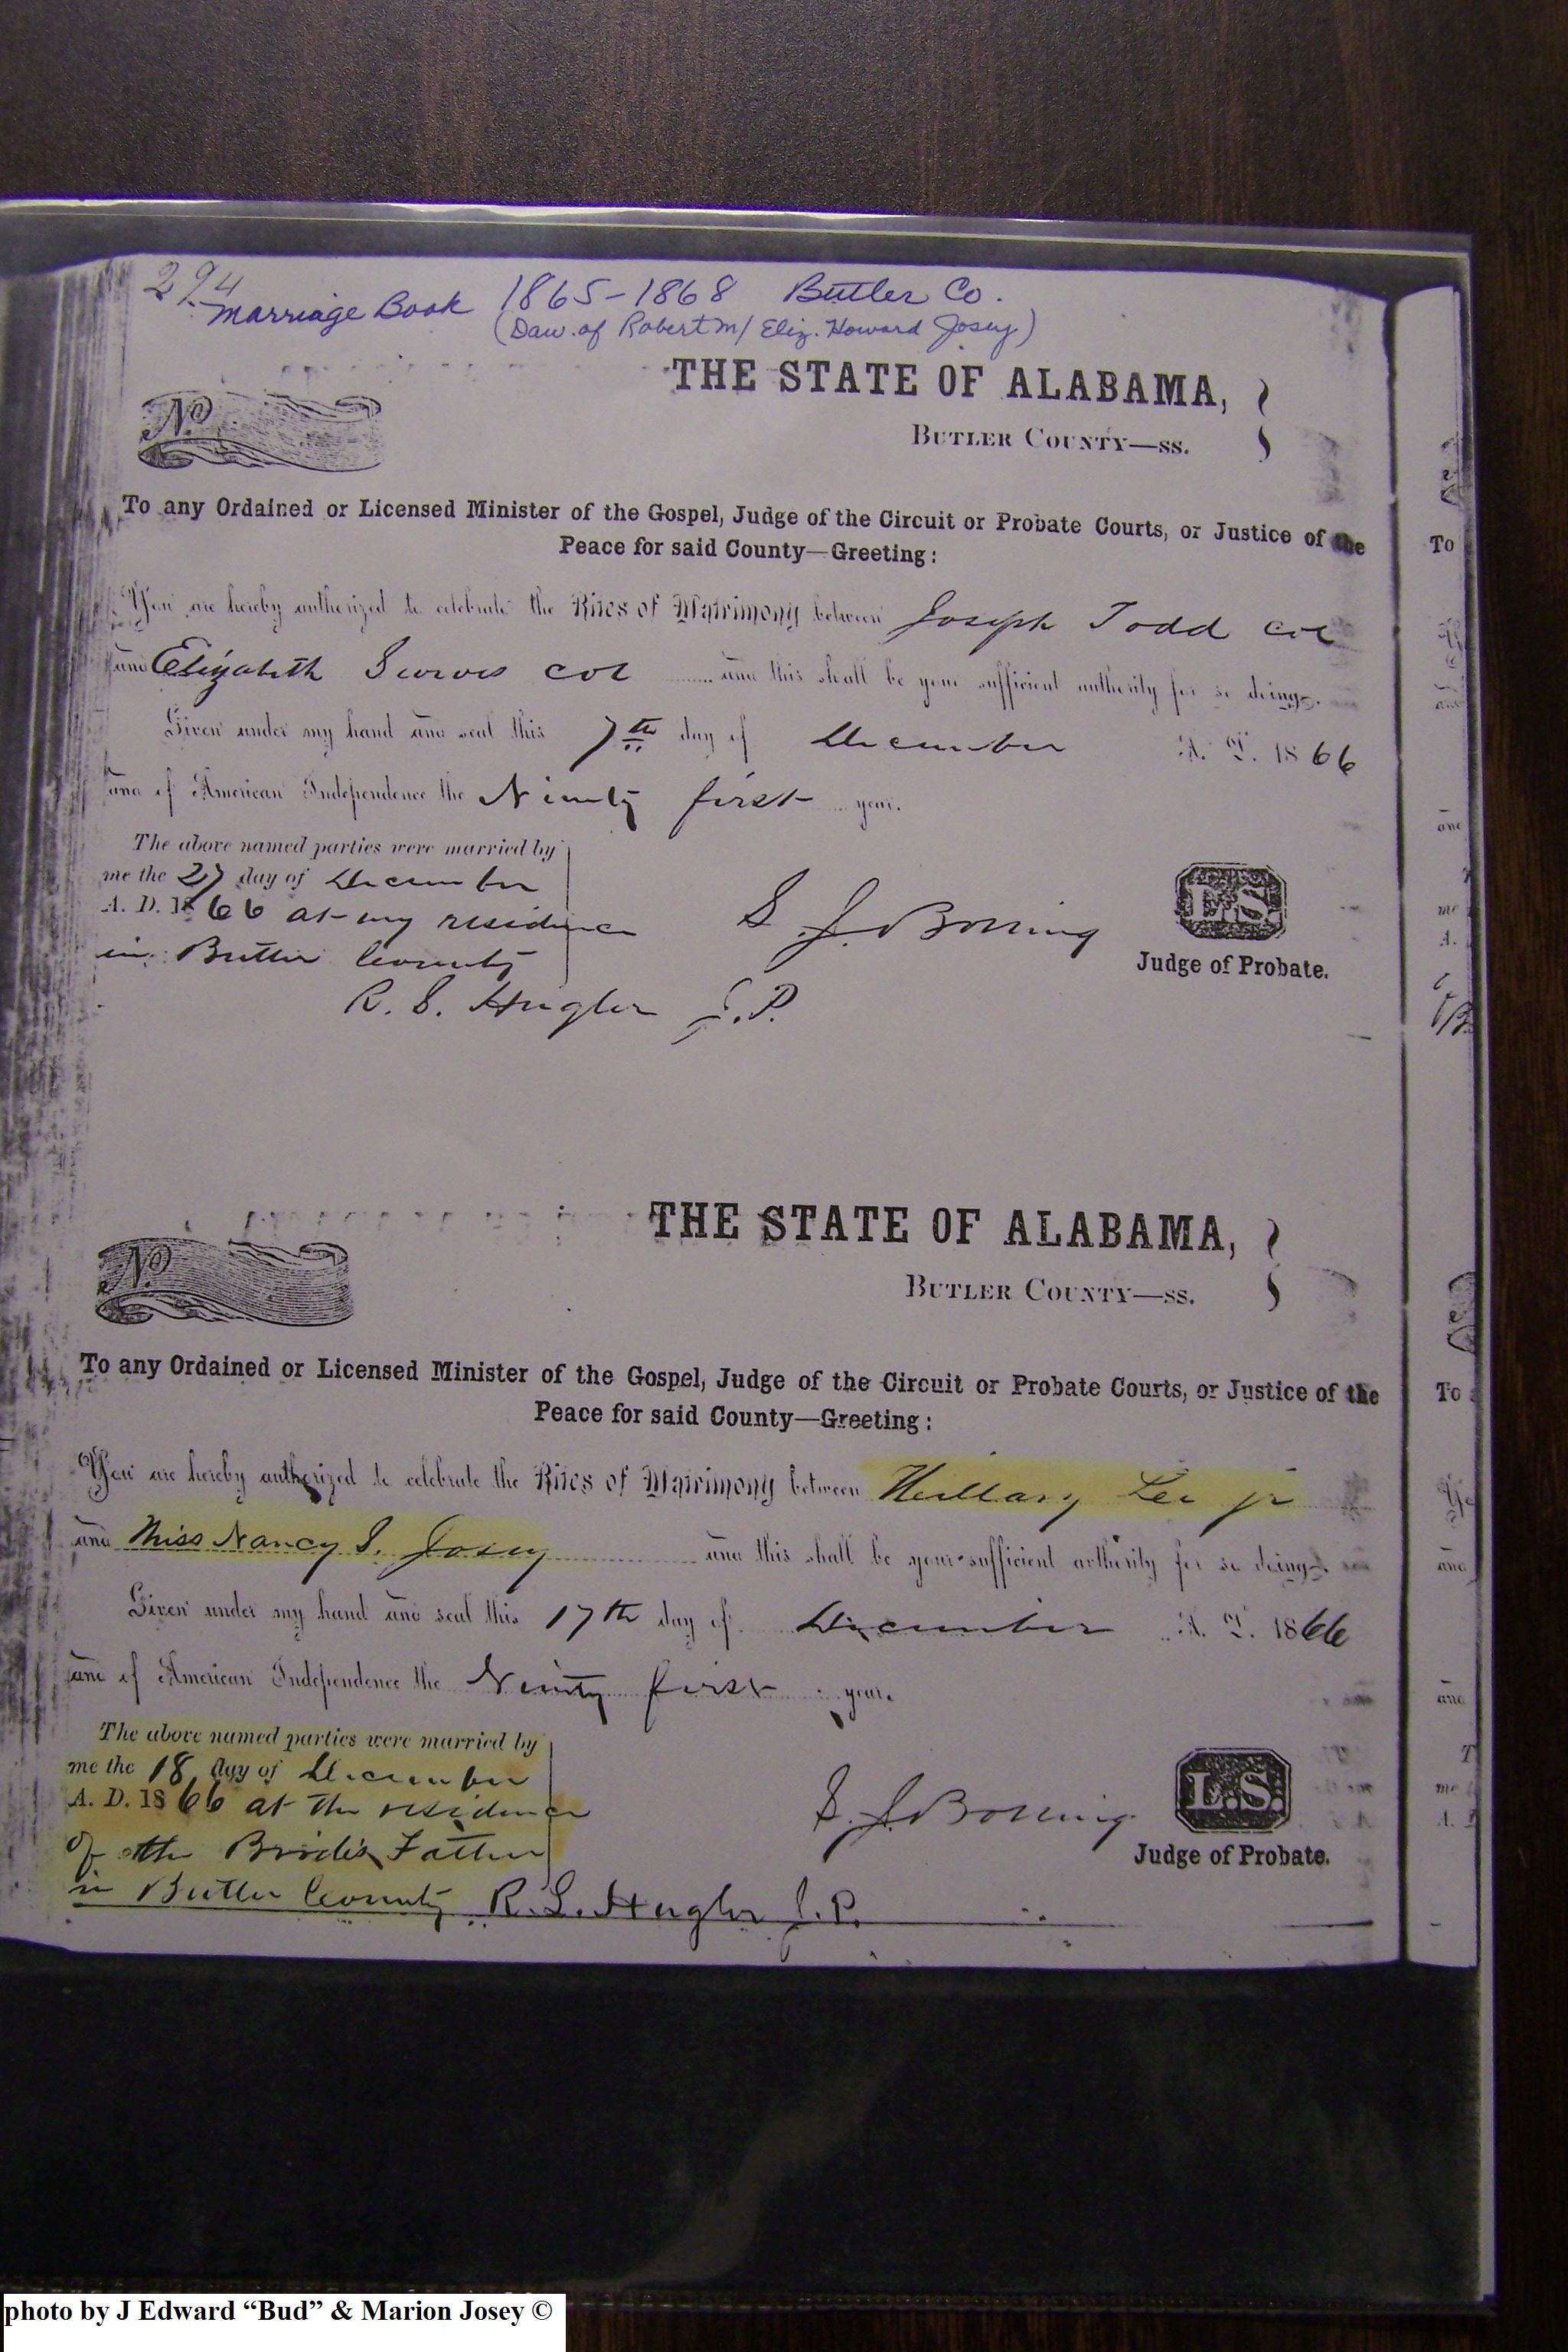 294
Marriage Book 1865-1868 Butler Co.
(Dau. of Robert M/ Eliz. Howard Josey)
THE STATE OF ALABAMA,
No.
BUTLER COUNTY—ss.
To any Ordained or Licensed Minister of the Gospel, Judge of the Circuit or Probate Courts, or Justice of the
Peace for said County—Greeting:
You are hereby authorized to celebrate the Rites of Matrimony between Joseph Todd col
and Elizabeth col and this shall be your sufficient authority for so doing.
Given under my hand and seal this 7th day of December A. D. 1866
and of American Independence the Ninety first year.
The above named parties were married by
me the 27 day of December
A. D. 1866 at my residence
in Butler County
S. J. Bolling
L.S.
Judge of Probate.
R. S. Hughes J.P.
THE STATE OF ALABAMA,
No.
BUTLER COUNTY—ss.
To any Ordained or Licensed Minister of the Gospel, Judge of the Circuit or Probate Courts, or Justice of the
Peace for said County—Greeting:
You are hereby authorized to celebrate the Rites of Matrimony between Hillary Lee jr
and Miss Nancy S. Josey and this shall be your sufficient authority for so doing.
Given under my hand and seal this 17th day of December A. D. 1866
and of American Independence the Ninety first year.
The above named parties were married by
me the 18 day of December
A. D. 1866 at the residence
of the Brides Father
in Butler County R. S. Hughes J.P.
S. J. Bolling
L.S.
Judge of Probate.
To
To
photo by J Edward “Bud” & Marion Josey ©